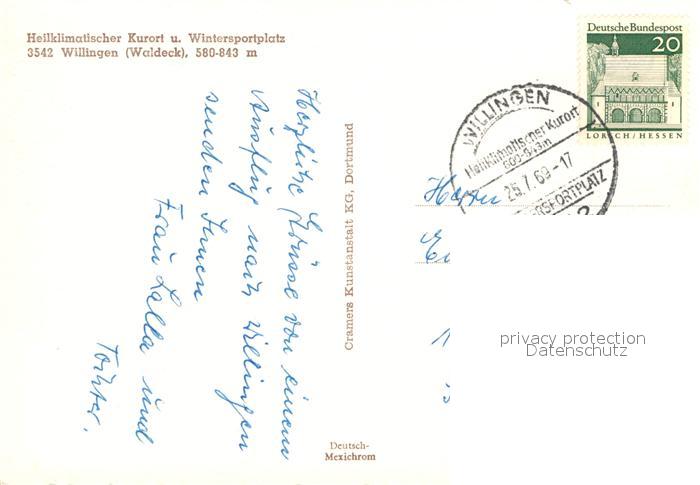 Heilklimatischer Kurort u. Wintersportplatz
3542 Willingen (Waldeck), 580-843 m
Herzliche Grüsse von einem
Ausflug nach Willingen
senden Ihnen
Frau Lalla und
Tochter.
Cramers Kunstanstalt KG, Dortmund
Deutsch-
Mexichrom
Deutsche Bundespost
20
LORSCH/HESSEN
WILLINGEN
Heilklimatischer Kurort
25.7.69-17
Herrn
privacy protection
Datenschutz